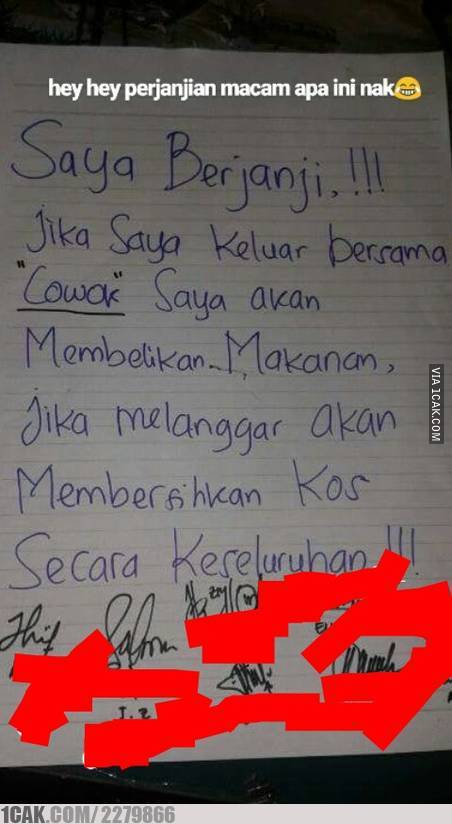 hey hey perjanjian macam apa ini nak😂
Saya Berjanji.!!!
Jika Saya Keluar bersama
"Cowok" Saya akan
Membelikan Makanan,
Jika melanggar akan
Membersihkan Kos
Secara Keseluruhan!!!
VIA 1CAK.COM
1CAK.COM/2279866